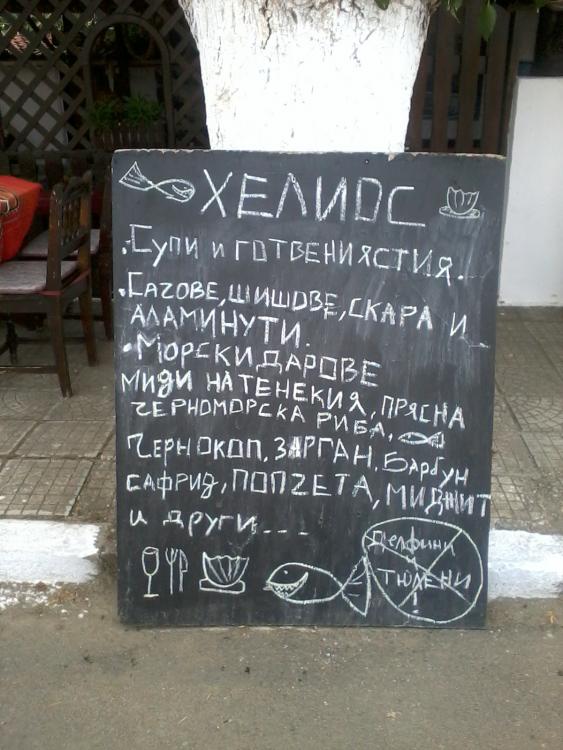 ХЕЛИОС
.Супи и готвени ястия.
.Сачове, шишове, скара и
аламинути.
·Морски дарове
миди на тенекия, прясна
черноморска риба,
Чернокоп, зарган, Барбун
сафрид, попчета, миднит
и други...
Делфини
и
тюлени
!